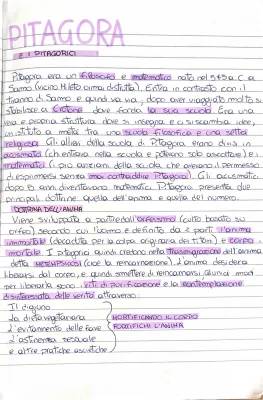 PITAGORA
E I PITAGORICI
Pitagora era un filosofo e matematico nato nel 575 a.C. a
Samo (vicino Mileto ormai distrutta). Entra in contrasto con il
tiranno di Samo e quindi va via, dopo aver viaggiato molto si
stabilisce a Crotone dove fonda la sua scuola. Era una
vera e propria struttura dove si insegna e ci si scambia idee,
un istituto a metà tra una scuola filosofica e una setta
religiosa. Gli allievi della scuola di Pitagora erano divisi in
acusmatici (che entrano nella scuola e potevano solo ascoltare) e i
matematici i più anziani della scuola che avevano il permesso
di esprimersi senza mai contraddire Pitagora. Gli acusmatici
dopo anni diventavano matematici. Pitagora presenta due
principali dottrine: quella dell'anima e quella del numero.
DOTTRINA DELL'ANIMA
Viene sviluppata a partire dall'orfeismo (culto basato su
orfeo) secondo cui l'uomo è definito da 2 parti: l'anima
immortale (decaduta per la colpa originaria dei titani) e corpo
mortale. I pitagorici quindi credono nella trasmigrazione dell'anima
detta METEMPSICOSI (cioè la reincarnazione). L'anima desidera
liberarsi dal corpo, e quindi smettere di reincarnarsi. Gli unici modi
per liberarla sono i riti di purificazione e la contemplazione
disinteressata delle verità attraverso:
Il digiuno
La dieta vegetariana
L'evitamento delle fave
L'astinenza sessuale
e altre pratiche ascetiche
MORTIFICANDO IL CORPO
FORTIFICHI L'ANIMA